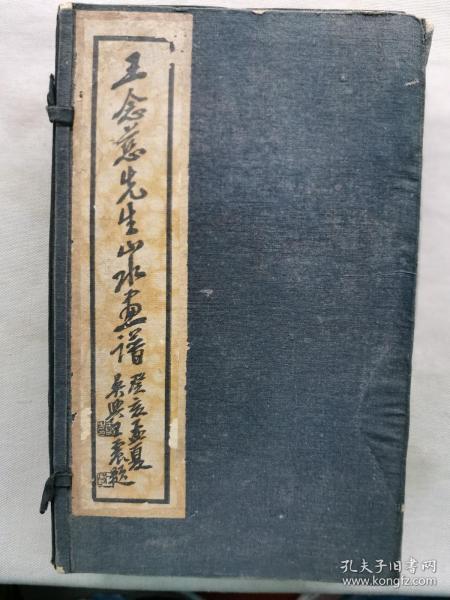 王念慈先生山水画谱
癸亥孟夏
吴兴王震题
孔夫子旧书网
www.kongfz.com